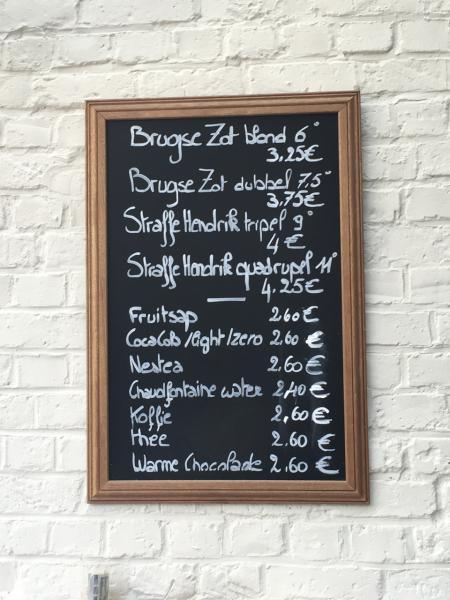 Brugse Zot blond 6°
3,25€
Brugse Zot dubbel 7.5°
3,75€
Straffe Hendrik tripel 9°
4€
Straffe Hendrik quadrupel 11°
4.25€
Fruitsap 2.60 €
Coca Cola /light/zero 2.60 €
Nestea 2.60 €
Chaudfontaine water 2,40 €
Koffie 2.60 €
thee 2.60 €
Warme Chocolade 2.60 €